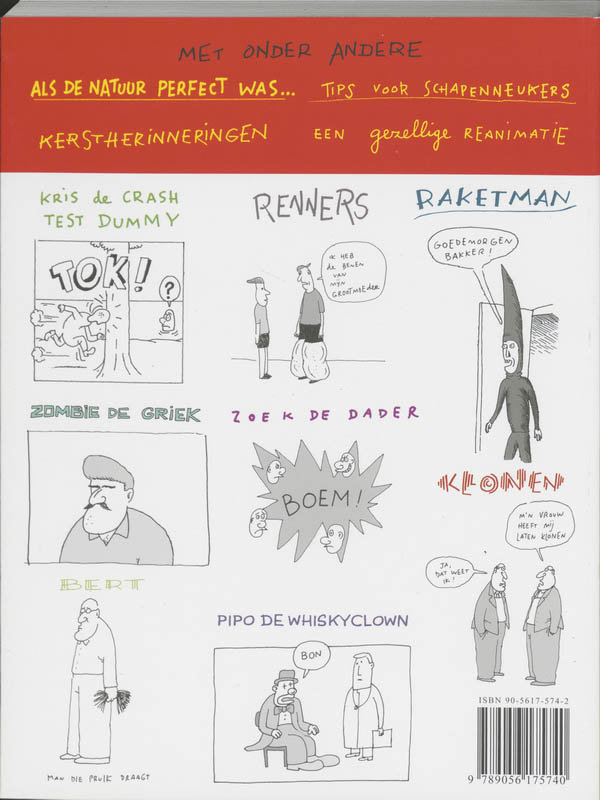 MET ONDER ANDERE
ALS DE NATUUR PERFECT WAS...
TIPS VOOR SCHAPENNEUKERS
KERSTHERINNERINGEN
EEN gezellige REANIMATIE
KRIS de CRASH
TEST DUMMY
TOK!
?
RENNERS
IK HEB
de BENEN
VAN
MIJN
GROOTMOEDER
RAKETMAN
GOEDEMORGEN
BAKKER!
ZOMBIE DE GRIEK
ZOEK DE DADER
BOEM!
KLONEN
M'N VROUW
HEEFT MIJ
LATEN KLONEN
JA,
DAT WEET
IK!
BERT
MAN DIE PRUIK DRAAGT
PIPO DE WHISKYCLOWN
BON
ISBN 90-5617-574-2
9 789056 175740